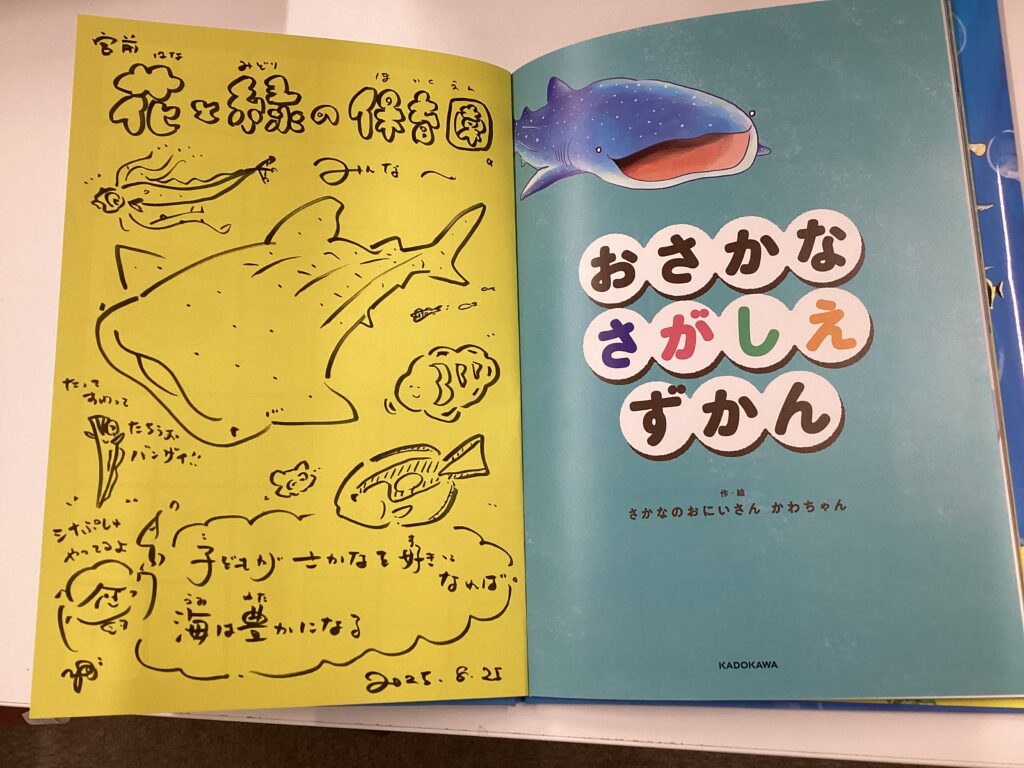 宮前
はな みどり ほいくえん
花と緑の保育園
みんな〜
たって
すわって
たちうお
バンザイ!!
シナぷしゅ
やってるよ
子どもが さかなを 好きに
なれば
うみ ゆた
海は豊かになる
2025.8.25
おさかな
さがしえ
ずかん
作・絵
さかなのおにいさん かわちゃん
KADOKAWA